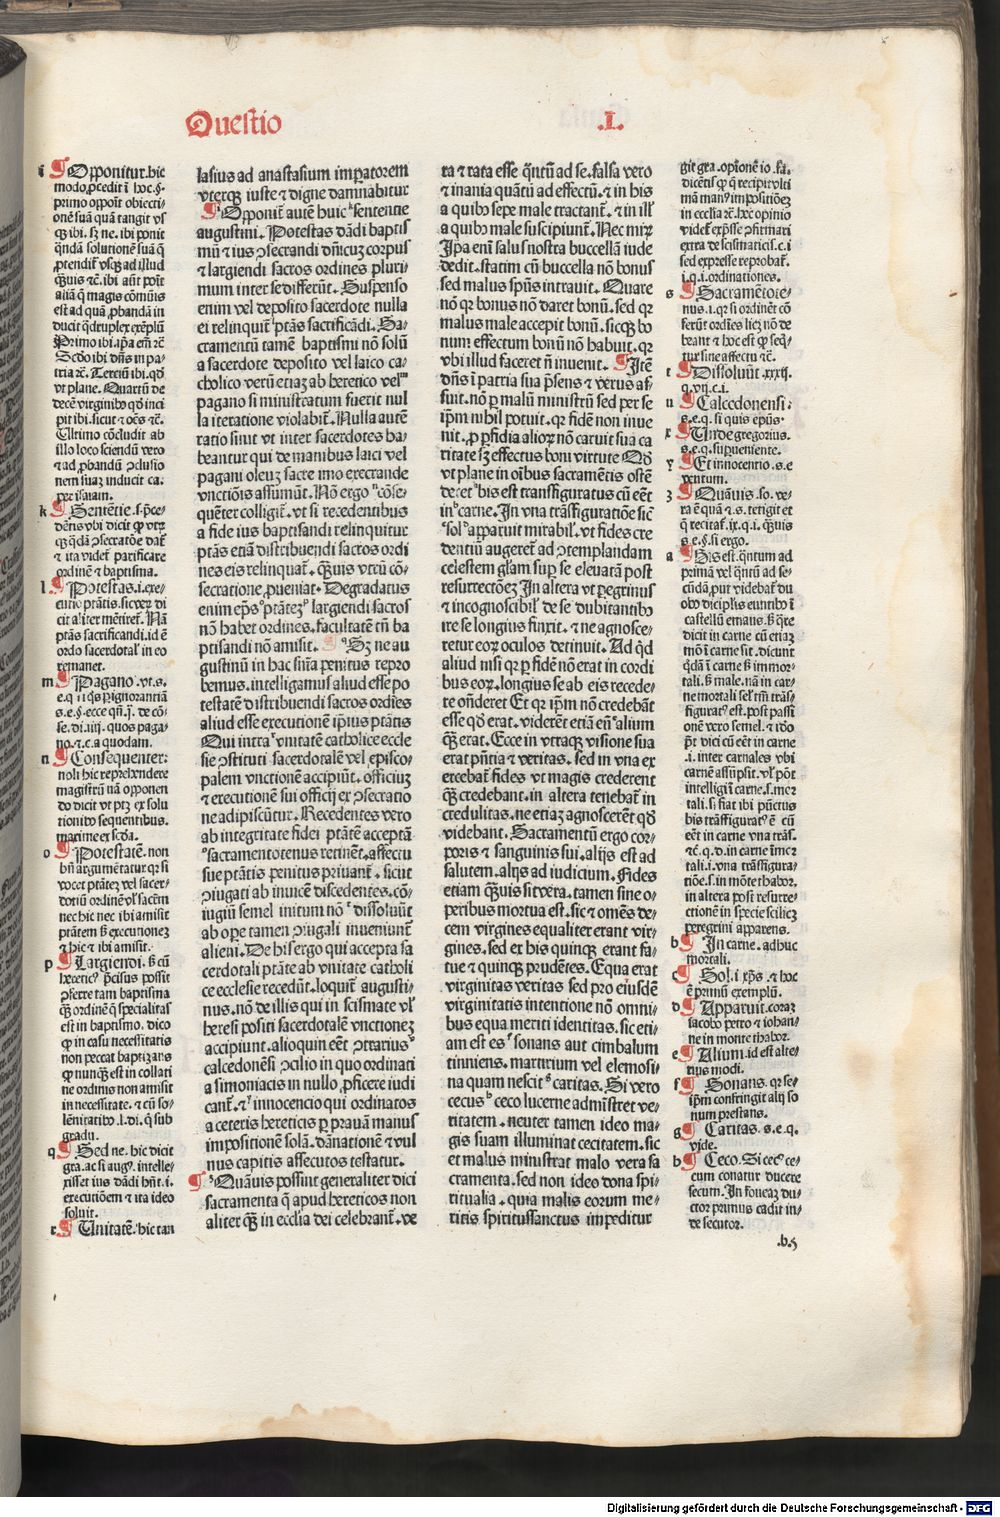 Questio
.I.
i ¶ Opponitur. hic
modo, pcedit ĩ hoc. §.
primo oppoıt obiecti⸗
onē suā quā tangit vs
qz ibi. sz ne. ibi ponit
q̄ndā solutionē suā q̄
, ptendit̄ vsqz ad illud
q̄uis ⁊c̄. ibi aūt poıt
aliā q̄ magis cōmūis
est ad quā , pbandā in
ducit q̄druplex exēplū
Primo ibi. ip̄a em̄ ⁊c̄
Scdo ibi dn̄s in pa⸗
tria ⁊c̄. Terciū ibi. qd̄
vt plane. Quartū de
decē virginibꝰ qd̄ inci
pit ibi. sicut ⁊ oēs ⁊c̄.
Ultimo ꝯcludit ab
illo loco sciendū vero
⁊ ad , pbandū ꝯclusio
nem suaz inducit ca.
per isaiam.
k ¶ Sentētie. s. p̄ce⸗
dētis vbi dicit qꝫ vtz
qꝫ q̄dā ꝯsecratōe dat̄
⁊ ita videt̄ parificare
ordinē ⁊ baptisma.
l ¶ Potestas. i. exe⸗
cutio ptātis. sic verꝫ di
cit aliter mētiret̄. Nā
ptās sacrificandi. id ē
ordo sacerdotal̄ in eo
remanet.
m ¶ Pagano. vt. s.
e. q. ii. qs per ignorantiā
s. e. §. ecce qn̄. ꝫ. de cō⸗
se. di. iiij. quos paga⸗
no. ⁊ c. a quodam.
n ¶ Consequenter:
noli hic reprehendere
magistrū nā opponen
do dicit vt ptꝫ ex solu
tionibꝰ sequentibus.
maxime ex scda.
o ¶ Potestatē. non
bn̄ argumētatur. qꝛ si
vocet ptātez vel sacer⸗
dotiū ordinē vl̄ sacēm
nec hic nec ibi amisit
ptātem sꝫ executionez
⁊ hic ⁊ ibi amisit.
p ¶ Largiendi. sꝫ cū
heretic9 p̄cisus possit
ꝯferre tam baptisma
qꝫ ordinē q̄ specialitas
est in baptismo. dico
qꝫ in casu necessitatis
non peccat baptizans
qꝫ nunqꝫ est in collati
ne ordinis non amisit
in necessitate. ⁊ cū so⸗
lēnitatibꝰ. l. di. q̄ sub
gradu.
q ¶ Sed ne. hic dicit
gra. ac si aug9. intelle⸗
xisset ius dādi hn̄t. i.
executiōem ⁊ ita ideo
soluit.
r ¶ Unitatē. hic tan
lasius ad anastasium imp̄atorem
vterqꝫ iuste ⁊ digne damnabitur
¶ Opponit̄ autē huic sententie
augustini. Potestas dādi baptis
mū ⁊ ius ꝯsecrandi dn̄icuꝫ corpus
⁊ largiendi sacros ordines pluri⸗
mum inter se differūt. Suspenso
enim vel deposito sacerdote nulla
ei relinquit̄ ptās sacrificādi. Sa⸗
cramentū tamē baptismi nō solū
a sacerdote deposito vel laico ca⸗
tholico verū etiaꝫ ab heretico vel
pagano si ministratum fuerit nul
la iteratione violabit̄. Nulla autē
ratio sinit vt inter sacerdotes ha⸗
beantur qui de manibus laici vel
pagani oleuꝫ sacre imo execrande
vnctiōis assumūt. Nō ergo cōse⸗
quēter colligit̄. vt si recedentibus
a fide ius baptisandi relinquitur
ptās etiā distribuendi sacros ordi
nes eis relinquat̄. qꝫuis vtrū cō⸗
secratione , pueniat. Degradatus
enim ep̄s ptātez largiendi sacros
nō habet ordines. facultatē tn̄ ba
ptisandi nō amisit. ¶ Sꝫ ne au
gustinū in hac sn̄ia penitus repro
bemus. intelligamus aliud esse po
testatē distribuendi sacros ordīes
aliud esse executionē ip̄ius ptātis
Qui intra vnitatē catholice eccle
sie ꝯstituti sacerdotalē vel episco⸗
palem vnctionē accipiūt. officiuꝫ
⁊ executionē sui officij ex ꝯsecratio
ne adipiscūtur. Recedentes vero
ab integritate fidei ptātē acceptā
sacramentotenus retinēt. affectu
sue ptātis penitus priuant̄. sicut
ꝯiugati ab inuicē discedentes. cō⸗
iugiū semel initum nō dissoluūt
ab ope tamen ꝯiugali inueniunt̄
alieni. De his ergo qui accepta sa
cerdotali ptāte ab vnitate catholi
ce ecclesie recedūt. loquit̄ augusti⸗
nus. nō de illis qui in scismate vl̄
heresi positi sacerdotalē vnctionez
accipiunt. alioquin eēt ꝯtrarius
calcedonēsi ꝯcilio in quo ordinati
a simoniacis in nullo , pficere iudi
cant̄. ⁊ innocencio qui ordinatos
a ceteris hereticis per prauā manus
impositionē solā. dānationē ⁊ vul
nus capitis assecutos testatur.
¶ Quāuis possint generaliter dici
sacramenta q̄ apud hereticos non
aliter qꝫ in ecclīa dei celebrant̄. ve
ra ⁊ rata esse q̄ntū ad se. falsa vero
⁊ inania quātū ad effectū. ⁊ in his
a quibꝰ sepe male tractant̄. ⁊ in ill̄
a quibꝰ male suscipiunt̄. Nec mirꝫ
Ip̄a enī salus nostra buccellā iude
dedit. statim cū buccella nō bonus
sed malus spūs intrauit. Quare
nō qꝛ bonus nō daret bonū. sed qꝛ
malus male accepit bonū. sicqꝫ bo
num effectum bonū nō habuit. qꝛ
vbi illud faceret n̄ inuenit. ¶ Itē
dn̄s ī patria sua p̄sens ⁊ verus af⸗
fuit. nō p malū ministrū sed per se
ip̄m nihil potuit. qꝛ fidē non inue
nit. ꝓ perfidia alioꝝ nō caruit sua ca
ritate sꝫ effectus boni virtute Qd̄
vt plane in oībus sacramētis ostē
deret bis est transfiguratus cū eēt
in carne. In vna trāsfiguratiōe sic
sol apparuit mirabil̄. vt fides cre
dentiū augeret̄ ad ꝯtemplandam
celestem gl̄am super se eleuatā post
resurrectōez In altera vt peregrinus
⁊ incognoscibil̄ de se dubitantibꝰ
ire se longius finxit. ⁊ ne agnosce⸗
retur eoꝝ oculos detinuit. Ad qd̄
aliud nisi qꝛ per fidē nō erat in cordi
bus eoꝝ. longius se ab eis recede⸗
te on̄deret Et qꝛ ip̄m nō credebāt
esse qd̄ erat. viderēt etiā en̄ alium
qꝫ erat. Ecce in vtraqꝫ visione sua
erat pn̄tia ⁊ veritas. sed in vna ex
ercebat̄ fides vt magis crederent
qꝫ credebant. in altera tenebat̄ in
credulitas. ne etiaꝫ agnoscerēt qd̄
videbant. Sacramentū ergo cor⸗
poris ⁊ sanguinis sui. alijs est ad
salutem. alijs ad iudicium. Fides
etiam qꝫuis sit vera. tamen sine o⸗
peribus mortua est. sic ⁊ omēs de⸗
cem virgines equaliter erant vir⸗
gines. sed ex his quinqꝫ erant fa⸗
tue ⁊ quinqꝫ prudētes. Equa erat
virginitas veritas sed pro eiusdē
virginitatis intentione nō omni⸗
bus equa meriti identitas. sic eti⸗
am est es sonans aut cimbalum
tinniens. martirium vel elemosi⸗
na quam nescit caritas. Si vero
cecus ceco lucerne admīstret ve⸗
ritatem. neuter tamen ideo ma⸗
gis suam illuminat cecitatem. sic
et malus ministrat malo vera sa
cramenta. sed non ideo dona spi⸗
ritualia. quia malis eorum me⸗
ritis spiritussanctus impeditur
git gra. opīonē io. fa.
dicētis qꝫ q̄ recipit vlti
mā man9 impositiōez
in ecclīa ⁊c̄. hec opinio
videt̄ exp̄sse ꝯfirmari
extra de scismaticis. c. i
sed expresse reprobat̄.
i. q. i. ordinationes.
s ¶ Sacramētote⸗
nus. i. qꝛ si ordinēt cō
ferūt ordīes licꝫ nō de
beant ⁊ hoc est qꝫ seq̄⸗
tur sine affectu ⁊c̄.
t ¶ Dissoluūt. xxxij.
q. vij. c. i.
u ¶ Calcedonensi:
s. e. q. si quis ep̄us.
x ¶ Unde gregorius.
s. e. q. superueniente.
y ¶ Et innocentio. s. e
ventum.
z ¶ Quāuis. so. ve⸗
ra ē quā ⁊ g. s. tetigit et
q̄ recitat̄. ix. q. i. q̄uis
s. e. §. si ergo.
a ¶ Bis est. q̄ntum ad
primā vel q̄ntū ad se⸗
cūdā. put videbat̄ du
obꝰ diciplis euntibꝰ ī
castellū emaus. sꝫ q̄re
dicit in carne cū etiaꝫ
mō ī carne sit. dicunt
q̄dā ī carne sꝫ immor⸗
tali. sꝫ male. nā in car⸗
ne mortali sel̄ tm̄ trās⸗
figurat9 est. post passi
onē vero semel. ⁊ iꝫo
p̄t dici cū eēt in carne
. i. inter carnales vbi
carnē assūpsit. vl̄ pōt
intelligi ī carne. s. mor
tali. sꝫ fiat ibi pūctus
bis trāsfigurat9 ē cū
eēt in carne vna trās.
⁊c̄. q. d. in carne īmor
tali. i. vna trāsfigura⸗
tiōe. s. in mōte thabor.
in altera post resurre⸗
ctionē in specie scilicꝫ
peregrini apparens.
b ¶ In carne. adhuc
mortali.
c ¶ Sol. i xp̄s. ⁊ hoc
ē primū exemplū.
d ¶ Apparuit. coraꝫ
iacobo petro ⁊ iohan⸗
ne in monte thabor.
e ¶ Alium. id est alte⸗
rius modi.
f ¶ Sonans. qꝛ se⸗
ip̄m confringit alij so
num prestans.
g ¶ Caritas. s. e. q.
vide.
h ¶ Ceco. Si cec9 ce⸗
cum conatur ducere
secum. In foueaꝫ du⸗
ctor primus cadit in⸗
de secutor.
.b.5
Digitalisierung gefördert durch die Deutsche Forschungsgemeinschaft - DFG